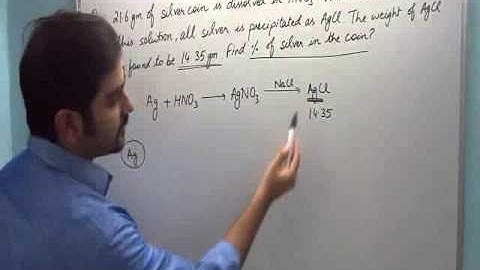 21.6 gm of silver coin is dissolved in HNO3
this solution, all silver is precipitated as AgCl The weight of AgCl
found to be 14.35 gm Find % of silver in the coin?
Ag + HNO3 → AgNO3 NaCl → AgCl
14.35
Ag